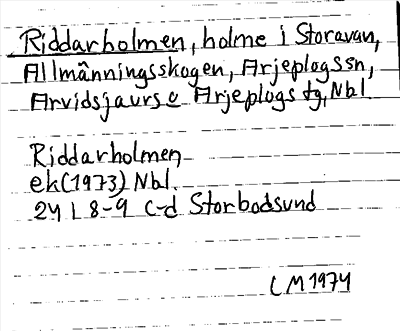 Riddarholmen, holme i Storavan,
Allmänningsskogen, Arjeplogs sn,
Arvidsjaurs o Arjeplogs tg, Nbl
Riddarholmen
ek (1973) Nbl.
24 I 8-9 c-d Storbodsund
LM 1974